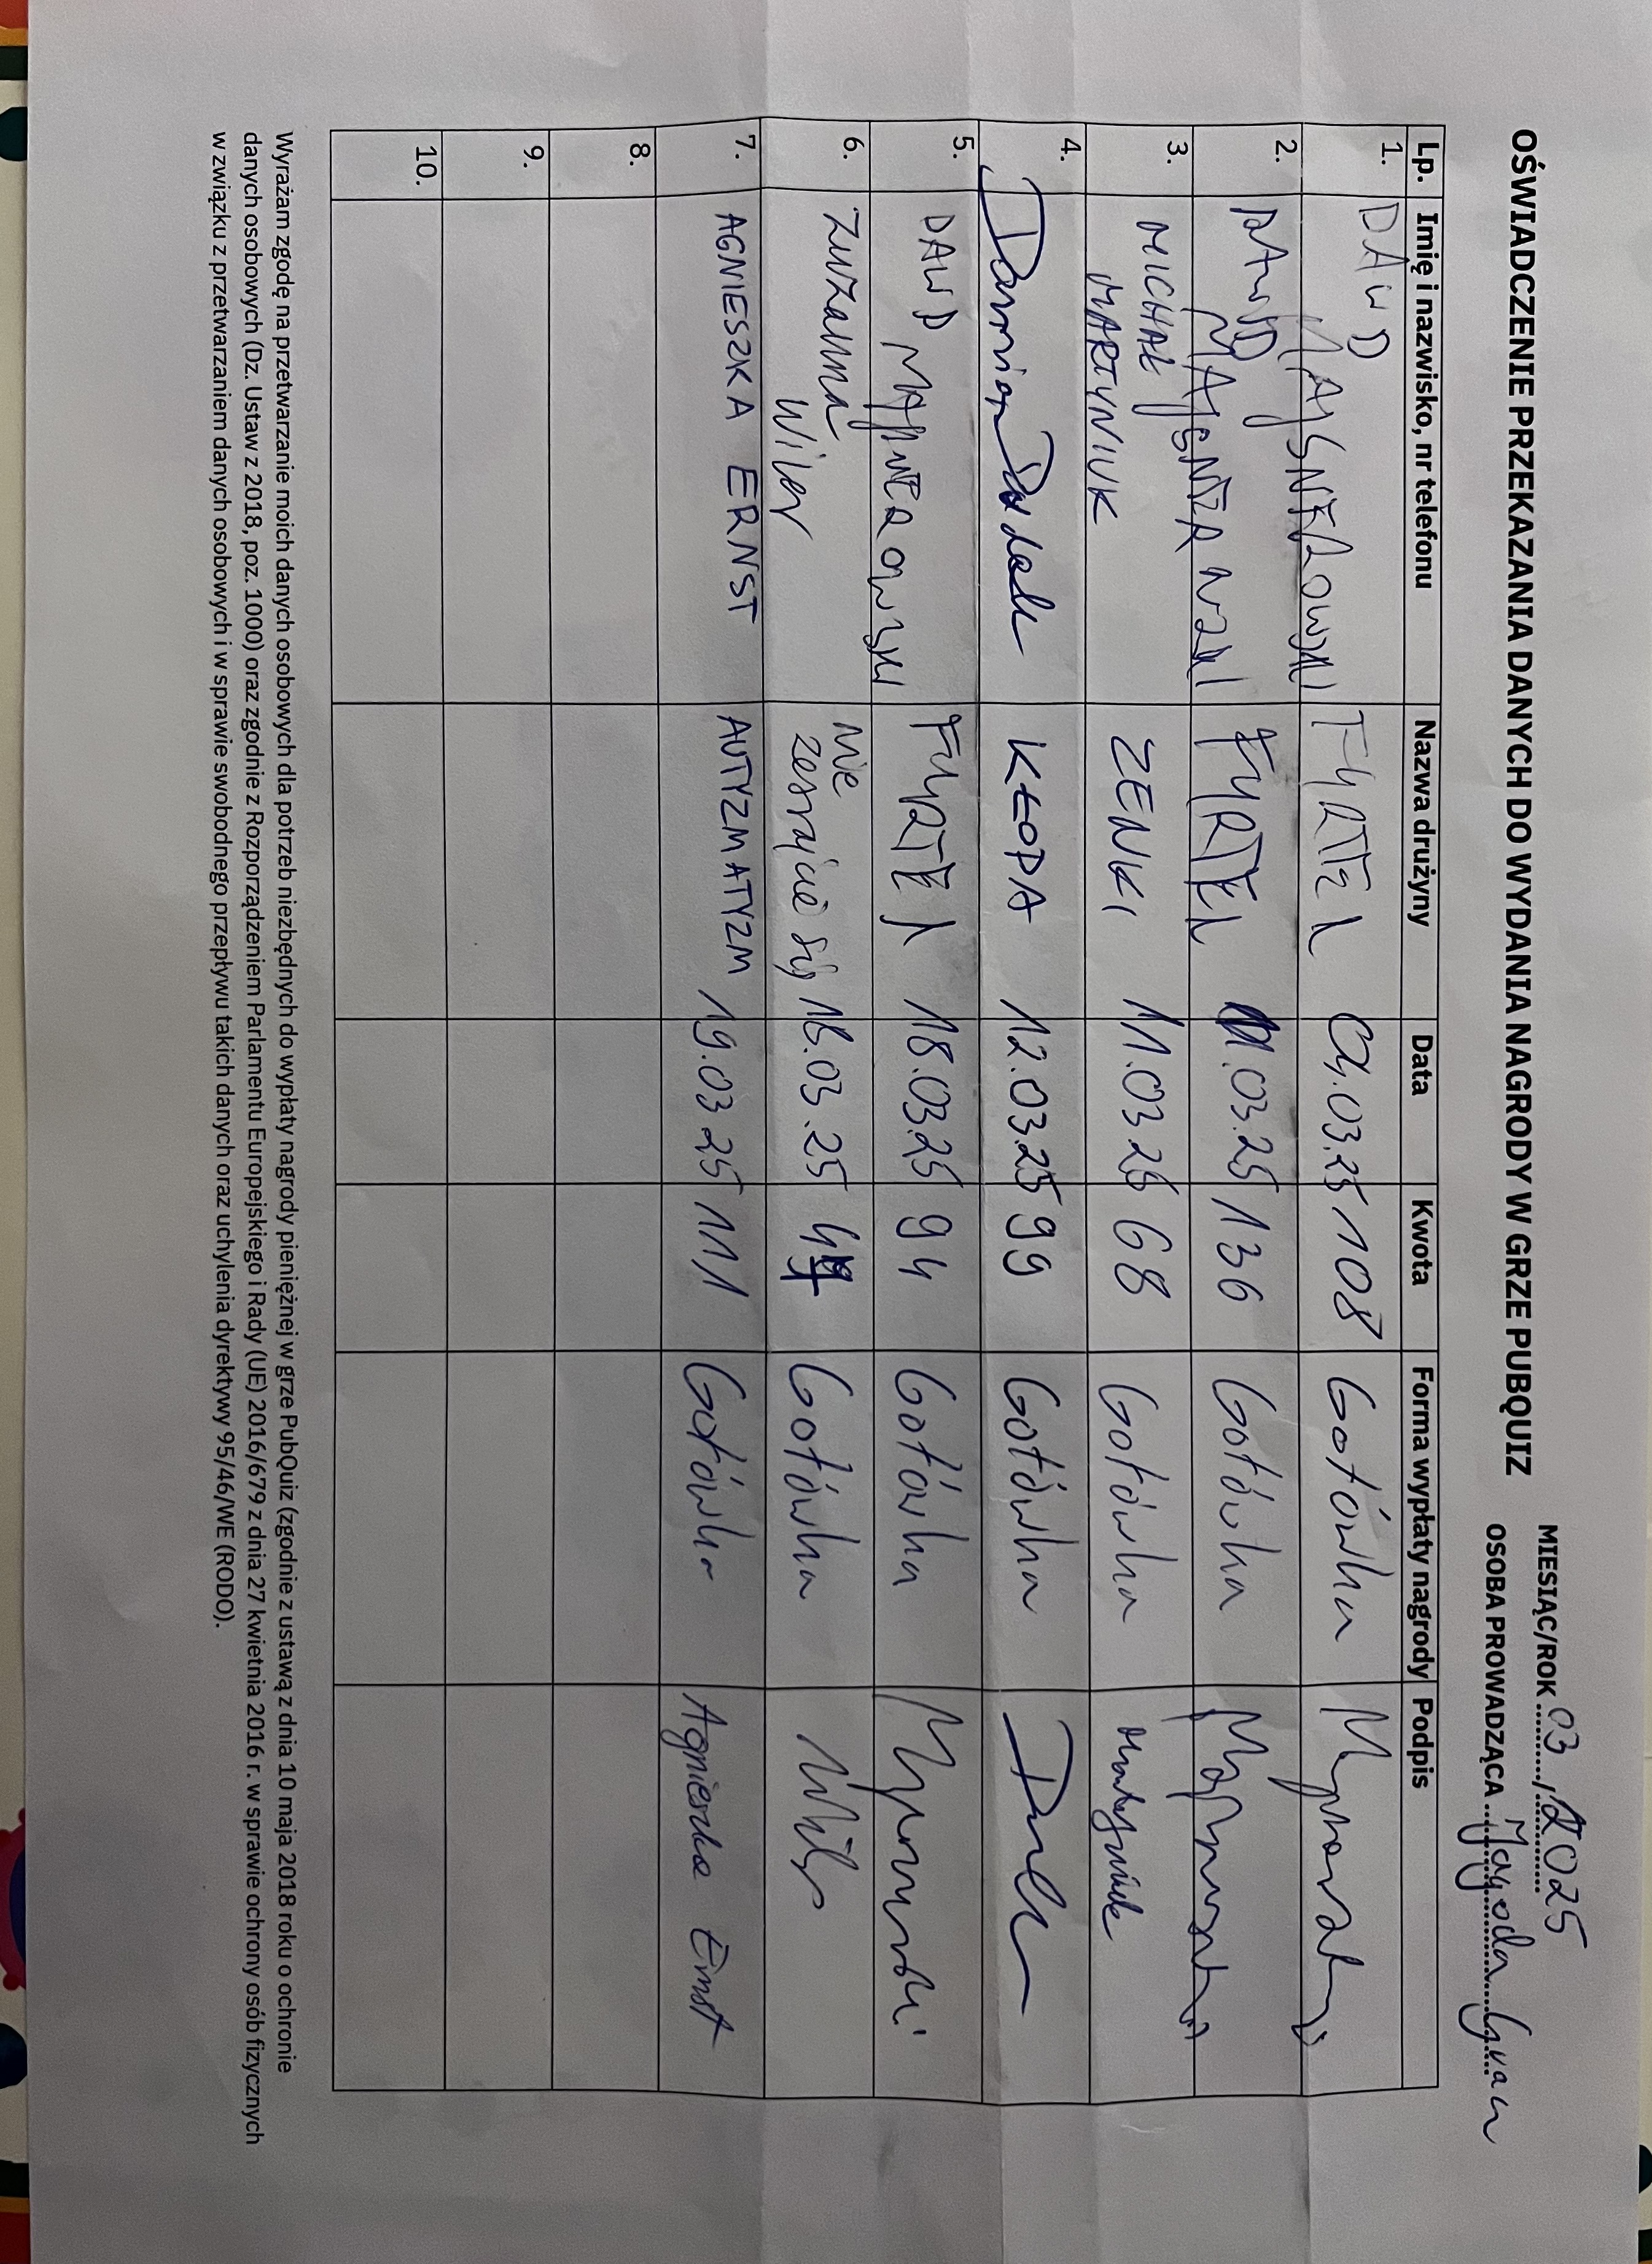 OŚWIADCZENIE PRZEKAZANIA DANYCH DO WYDANIA NAGRODY W GRZE PUBQUIZ
MIESIĄC/ROK 03 / 2025
OSOBA PROWADZĄCA Jagoda
Lp. Imię i nazwisko, nr telefonu Nazwa drużyny Data Kwota Forma wypłaty nagrody Podpis
1. DAWID FYRTEL 04.03.25 108 Gotówka
2. DAWID FYRTEL 11.03.25 136 Gotówka
3. MICHAŁ MARTYNIUK ZENKI 11.03.25 68 Gotówka Martyniuk
4. Damian Dudek KŁOPA 12.03.25 99 Gotówka
5. DAWID FYRTEL 18.03.25 94 Gotówka
6. Zuzanna Wiler Nie zesrajcie się 18.03.25 47 Gotówka
7. AGNIESZKA ERNST AUTYZMATYZM 19.03.25 111 Gotówka Agnieszka Ernst
8.
9.
10.
Wyrażam zgodę na przetwarzanie moich danych osobowych dla potrzeb niezbędnych do wypłaty nagrody pieniężnej w grze PubQuiz (zgodnie z ustawą z dnia 10 maja 2018 roku o ochronie
danych osobowych (Dz. Ustaw z 2018, poz. 1000) oraz zgodnie z Rozporządzeniem Parlamentu Europejskiego i Rady (UE) 2016/679 z dnia 27 kwietnia 2016 r. w sprawie ochrony osób fizycznych
w związku z przetwarzaniem danych osobowych i w sprawie swobodnego przepływu takich danych oraz uchylenia dyrektywy 95/46/WE (RODO).